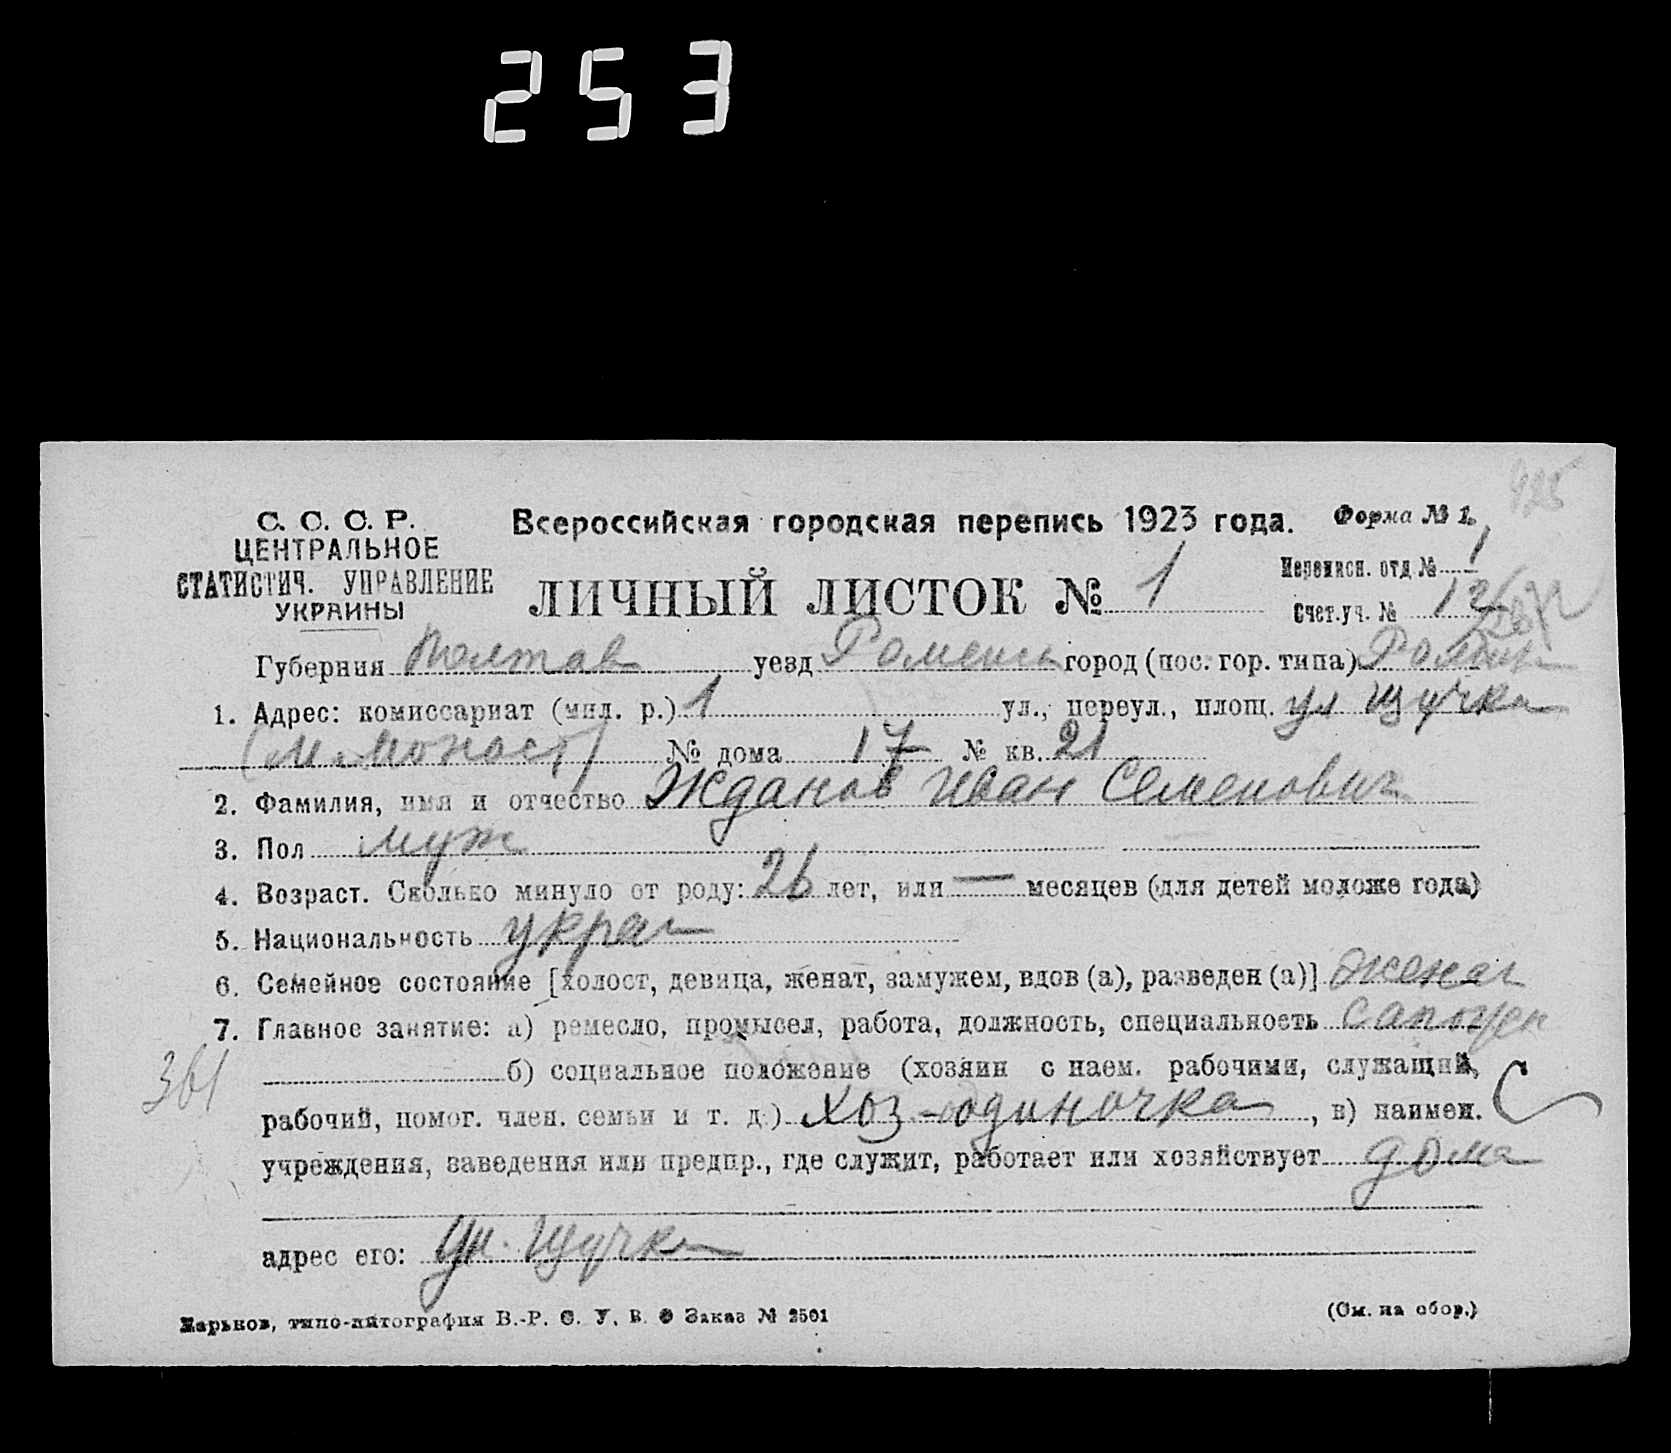 253
925
С. С. С. Р.
ЦЕНТРАЛЬНОЕ
СТАТИСТИЧ. УПРАВЛЕНИЕ
УКРАИНЫ
Всероссийская городская перепись 1923 года. Форма № 1.
ЛИЧНЫЙ ЛИСТОК № 1
Переписн. отд. № 1
Счет. уч. № 12
Губерния Полтав уезд Роменск город (пос. гор. типа)
1. Адрес: комиссариат (мил. р.) 1 ул., переул., площ. ул Щучка
(М Монаст) № дома 17 № кв. 21
2. Фамилия, имя и отчество Жданов Иван Семенович
3. Пол муж
4. Возраст. Сколько минуло от роду: 26 лет, или — месяцев (для детей моложе года)
5. Национальность украи
6. Семейное состояние [холост, девица, женат, замужем, вдов (а), разведен (а)] женат
7. Главное занятие: а) ремесло, промысел, работа, должность, специальность сапожн
361
б) социальное положение (хозяин с наем. рабочими, служащий,
рабочий, помог. член. семьи и т. д.) хоз-одиночка, в) наимен. С
учреждения, заведения или предпр., где служит, работает или хозяйствует дома
адрес его: Ул. Щучка
Харьков, типо-литография В.-Р. С. У. В. О Заказ № 2501 (См. на обор.)